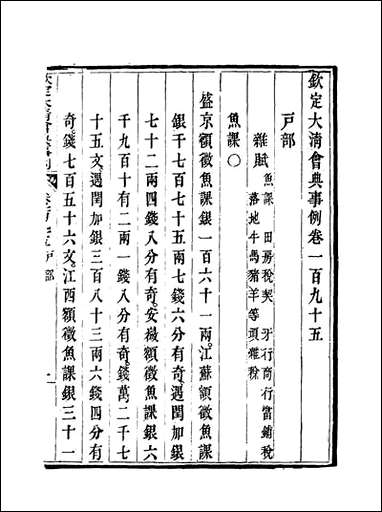 欽定大清會典事例卷一百九十五
戶部
雜賦 魚課 田房稅契 牙行商行當鋪稅
落地牛馬豬羊等項雜稅
魚課〇
盛京額徵魚課銀一百六十一兩。江蘇額徵魚課
銀千七百七十五兩七錢六分有奇。遇閏加銀
七十二兩四錢八分有奇。安徽額徵魚課銀六
千九百十有二兩一錢八分有奇。錢萬二千七
十五文。遇閏加銀三百八十三兩六錢四分有
奇。錢七百五十六文。江西額徵魚課銀三十一